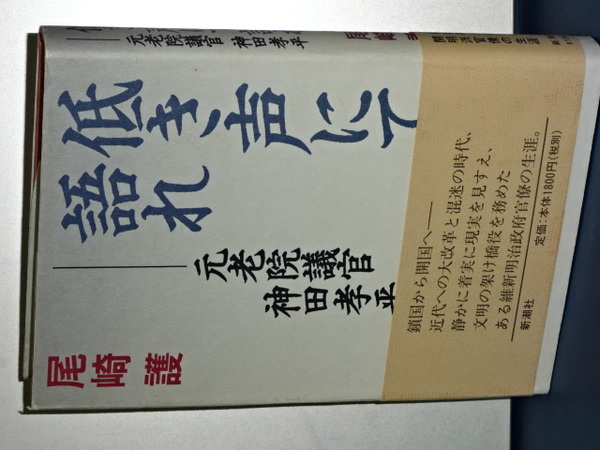 低き声にて
語れ
元老院議官
神田孝平
尾崎 護
鎖国から開国へ――
近代への大改革と混迷の時代、
静かに着実に現実を見すえ、
文明の架け橋役を務めた
ある維新明治政府官僚の生涯。
新潮社
定価:本体1800円(税別)
元老院議官 神田孝平